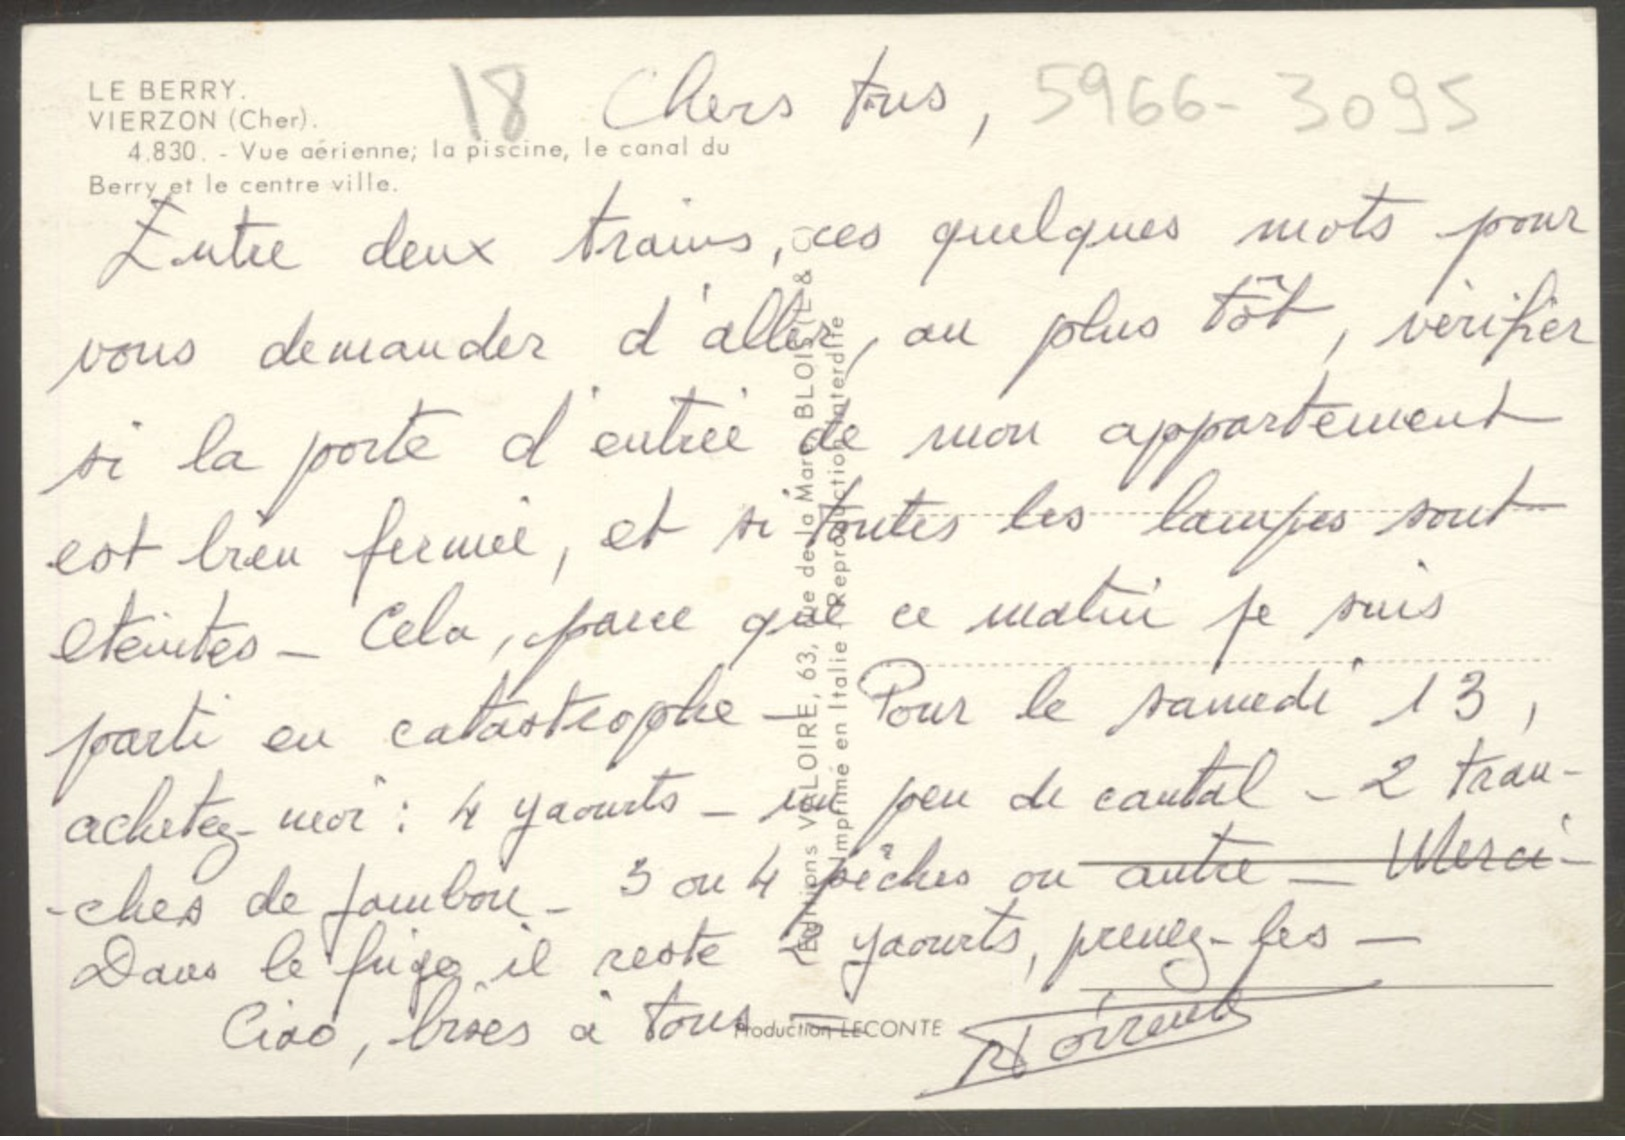 LE BERRY.
VIERZON (Cher).
4.830. - Vue aérienne; la piscine, le canal du
Berry et le centre ville.
18
5966-3095
Chers tous,
Entre deux trains, ces quelques mots pour
vous demander d'aller, au plus tôt, vérifier
si la porte d'entrée de mon appartement
est bien fermée, et si toutes les lampes sont
eteintes - Cela, parce que ce matin je suis
parti en catastrophe - Pour le samedi 13,
achetez-moi : 4 yaourts - un peu de cantal - 2 tran-
-ches de jambon - 3 ou 4 pêches ou autre - Merci -
Dans le frigo, il reste 2 yaourts, prenez-les -
Ciao, bises à tous -
Editions VALOIRE, 63, rue de la Mare, BLOIS
Imprimé en Italie Reproduction interdite
Production LECONTE